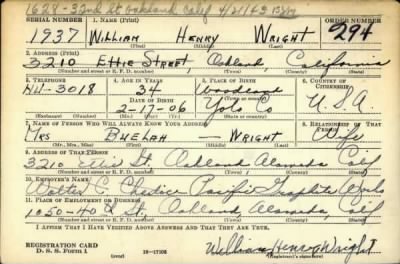 1628-32nd St Oakland Calif 4/21/43
SERIAL NUMBER 1. NAME (Print) ORDER NUMBER
1937 WILLIAM HENRY WRIGHT 294
(First) (Middle) (Last)
2. ADDRESS (Print)
3210 EFFIE STREET, Oakland California
(Number and street or R. F. D. number) (Town) (County) (State)
3. TELEPHONE 4. AGE IN YEARS 5. PLACE OF BIRTH 6. COUNTRY OF CITIZENSHIP
HU-3018 34 Woodland U.S.A.
DATE OF BIRTH
2-17-06 Yolo Co
7. NAME OF PERSON WHO WILL ALWAYS KNOW YOUR ADDRESS 8. RELATIONSHIP OF THAT PERSON
MRS BUELAH — WRIGHT Wife
(Mr., Mrs., Miss) (First) (Middle) (Last)
9. ADDRESS OF THAT PERSON
3210 Effie St. Oakland Alameda Calif
(Number and street or R. F. D. number) (Town) (County) (State)
10. EMPLOYER'S NAME
Walter C. Pacific Graphite Works
11. PLACE OF EMPLOYMENT OR BUSINESS
1050-40th St Oakland Alameda, Calif
(Number and street or R. F. D. number) (Town) (County) (State)
I AFFIRM THAT I HAVE VERIFIED ABOVE ANSWERS AND THAT THEY ARE TRUE.
REGISTRATION CARD
D. S. S. Form 1 (over) 16-17105 William Henry Wright
(Registrant's signature)